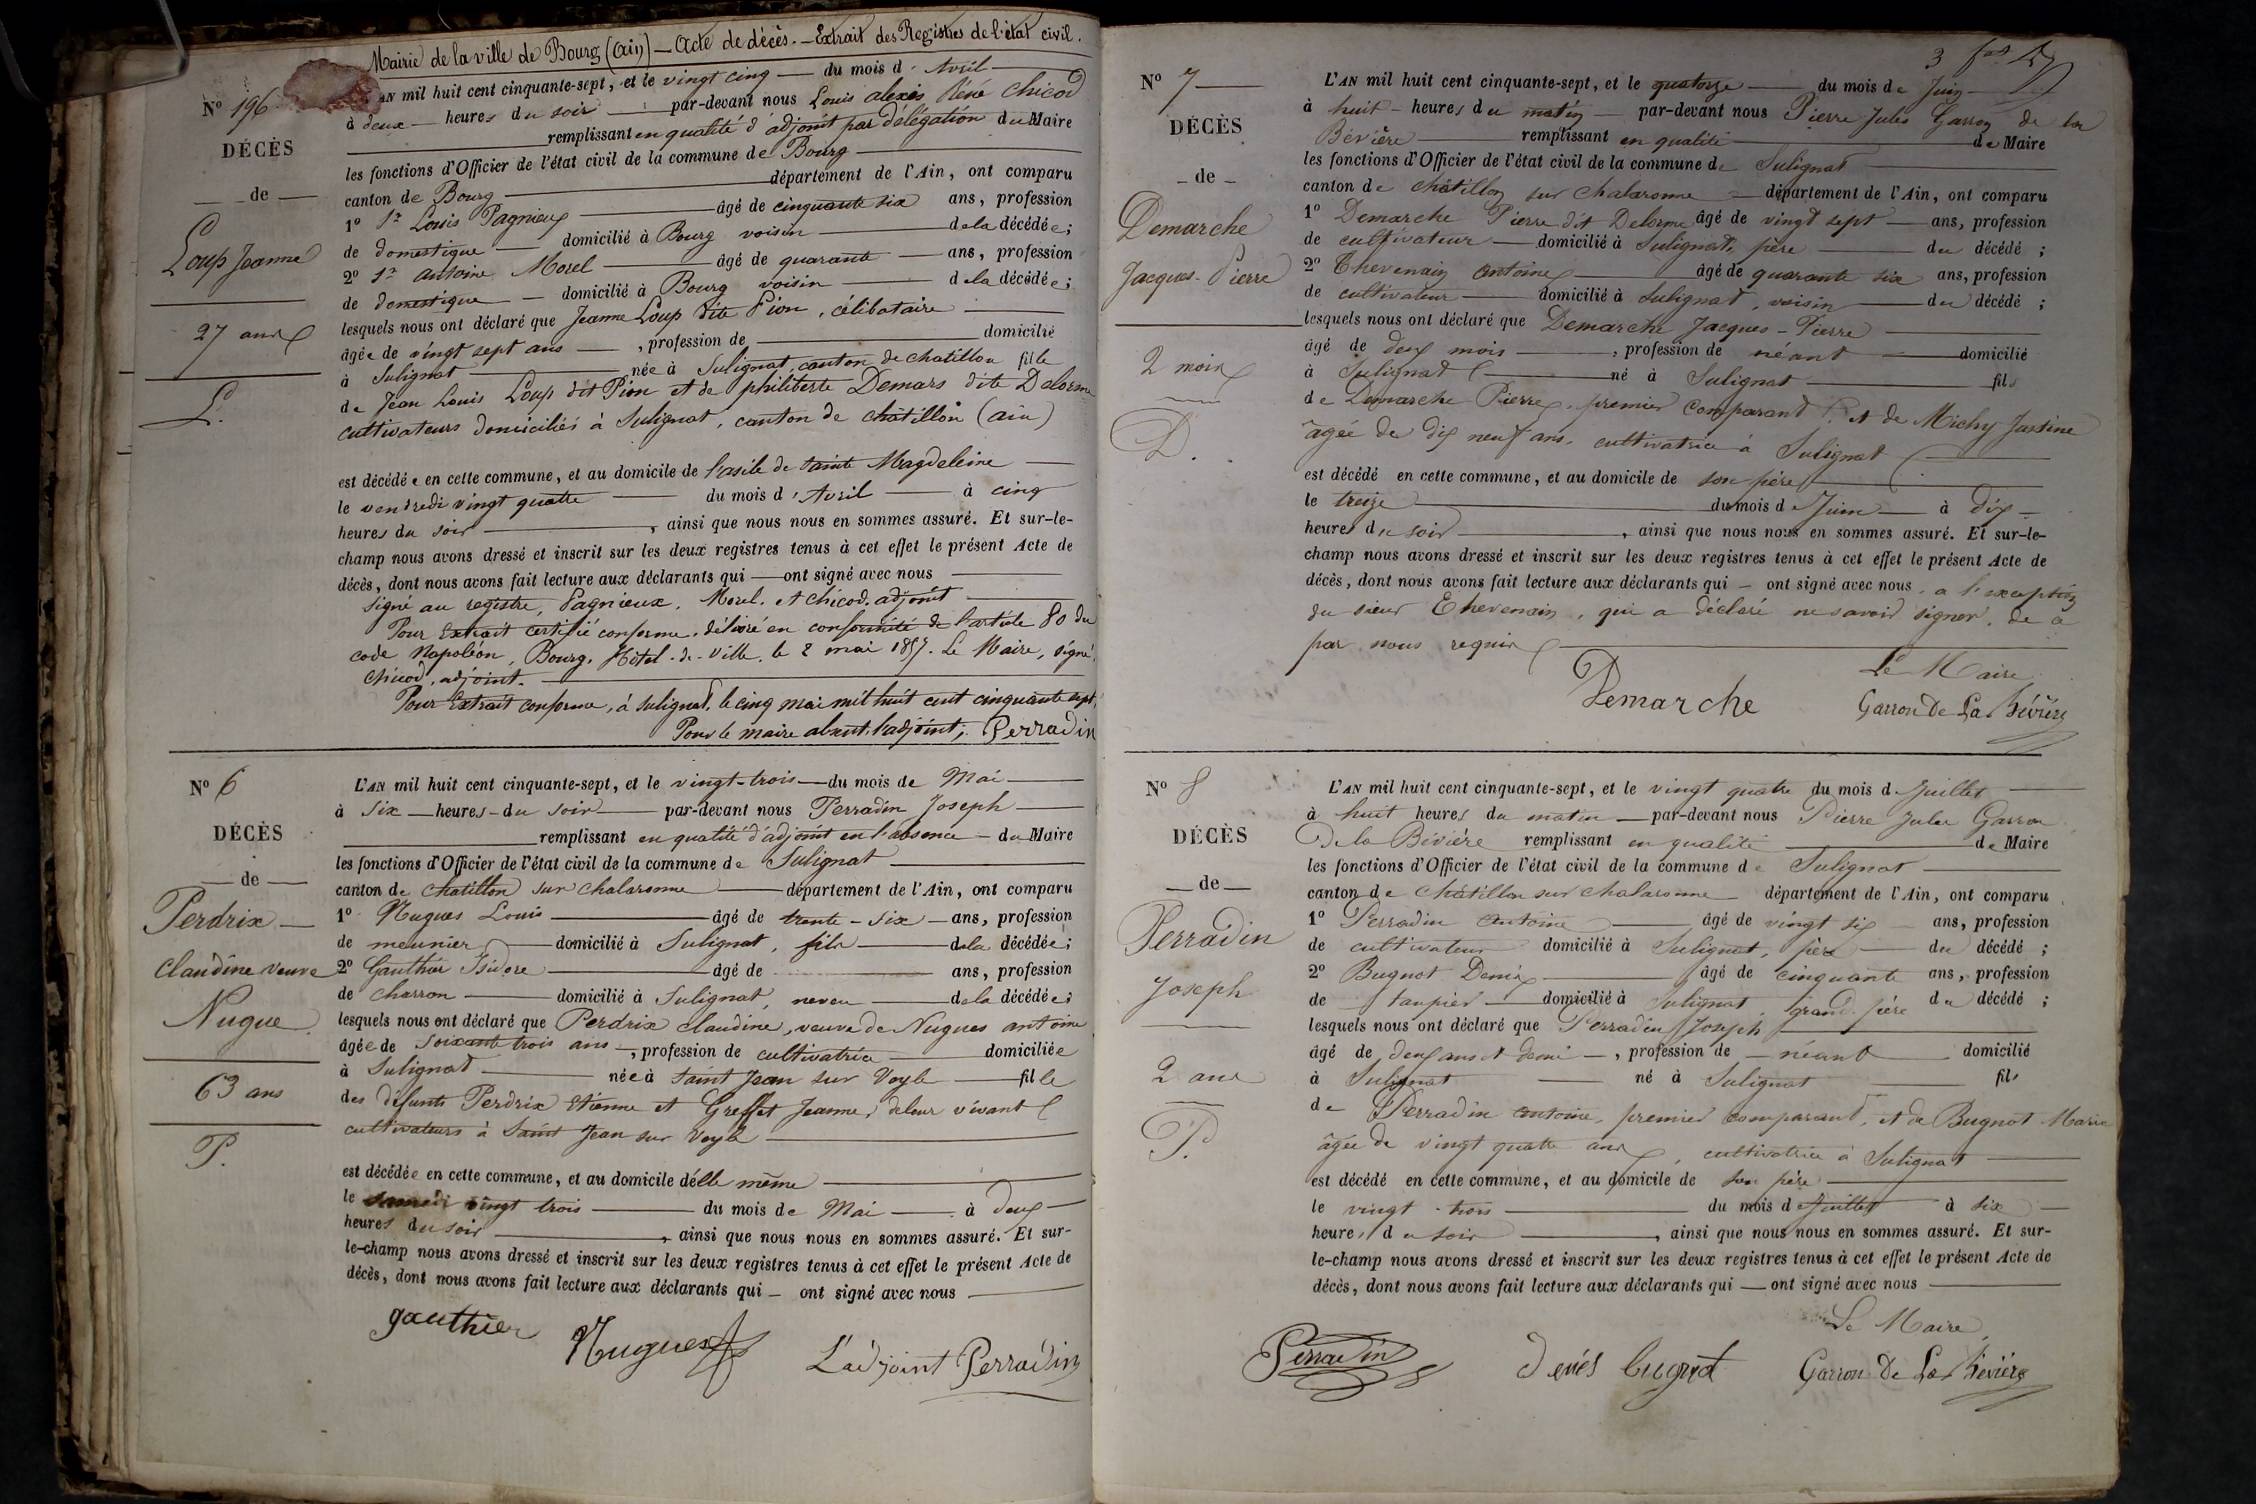 Mairie de la ville de Bourg (ain) — Acte de décès. — Extrait des Registres de l'état civil.
N° 196
DÉCÈS
de
Loup Jeanne
27 ans
L.
AN mil huit cent cinquante-sept, et le vingt cinq — du mois d'Avril
à deux — heures du soir — par-devant nous Louis alexis René Chicod
remplissant en qualité d'adjoint par délégation du Maire
les fonctions d'Officier de l'état civil de la commune de Bourg
canton de Bourg — département de l'Ain, ont comparu
1° Sr Louis Pagnieux — âgé de cinquante six ans, profession
de domestique — domicilié à Bourg voisin — de la décédée;
2° Sr antoine Morel — âgé de quarante — ans, profession
de domestique — domicilié à Bourg voisin — de la décédée;
lesquels nous ont déclaré que Jeanne Loup dite Pion, célibataire
âgée de vingt sept ans —, profession de — domicilié
à Sulignat — née à Sulignat, canton de chatillon fille
de Jean Louis Loup dit Pion et de philiberte Demars dite Delorme
cultivateurs domiciliés à Sulignat, canton de châtillon (ain)
est décédée en cette commune, et au domicile de l'asile de sainte Magdeleine
le vendredi vingt quatre — du mois d'Avril — à cinq
heures du soir —, ainsi que nous nous en sommes assuré. Et sur-le-
champ nous avons dressé et inscrit sur les deux registres tenus à cet effet le présent Acte de
décès, dont nous avons fait lecture aux déclarants qui — ont signé avec nous
signé au registre, Pagnieux, Morel. et chicod. adjoint
Pour Extrait certifié conforme, délivré en conformité de l'article 80 du
code Napoléon, Bourg, Hôtel-de-Ville, le 2 mai 1857. Le Maire, signé
chicod, adjoint.
Pour Extrait conforme, à sulignat, le cinq mai mil huit cent cinquante sept,
Pour le maire absent, l'adjoint, Perradin
N° 6
DÉCÈS
de
Perdrix
claudine veuve
Nugue
63 ans
P.
L'AN mil huit cent cinquante-sept, et le vingt-trois — du mois de Mai
à six — heures du soir — par-devant nous Perradin Joseph
remplissant en qualité d'adjoint en l'absence — du Maire
les fonctions d'Officier de l'état civil de la commune de Sulignat
canton de chatillon sur chalaronne — département de l'Ain, ont comparu
1° Nugues Louis — âgé de trente-six — ans, profession
de meunier — domicilié à Sulignat, fils — de la décédée;
2° Gauthier Isidore — âgé de — ans, profession
de charron — domicilié à Sulignat, neveu — de la décédée;
lesquels nous ont déclaré que Perdrix claudine, veuve de Nugues antoine
âgée de soixante trois ans —, profession de cultivatrice — domiciliée
à Sulignat — née à saint Jean sur Veyle — fille
des défunts Perdrix Etienne et Greffet Jeanne, de leur vivant
cultivateurs à Saint Jean sur Veyle
est décédée en cette commune, et au domicile d'elle même
le samedi vingt trois — du mois de Mai — à deux
heures du soir —, ainsi que nous nous en sommes assuré. Et sur-
le-champ nous avons dressé et inscrit sur les deux registres tenus à cet effet le présent Acte de
décès, dont nous avons fait lecture aux déclarants qui — ont signé avec nous
gauthier Nugues L'adjoint Perradin
3
N° 7
DÉCÈS
de
Demarche
Jacques-Pierre
2 mois
D.
L'AN mil huit cent cinquante-sept, et le quatorze — du mois de Juin
à huit — heures du matin — par-devant nous Pierre Jules Garron de la
Bévière — remplissant en qualité — de Maire
les fonctions d'Officier de l'état civil de la commune de Sulignat
canton de châtillon sur chalaronne — département de l'Ain, ont comparu
1° Demarche Pierre dit Delorme âgé de vingt sept — ans, profession
de cultivateur — domicilié à Sulignat, père — du décédé;
2° Thevenain Antoine — âgé de quarante six ans, profession
de cultivateur — domicilié à Sulignat, voisin — du décédé;
lesquels nous ont déclaré que Demarche Jacques-Pierre
âgé de deux mois —, profession de néant — domicilié
à Sulignat — né à Sulignat — fils
de Demarche Pierre, premier comparant, et de Michy Justine
âgée de dix neuf ans, cultivatrice à Sulignat
est décédé en cette commune, et au domicile de son père
le treize — du mois de Juin — à dix
heures du soir —, ainsi que nous nous en sommes assuré. Et sur-le-
champ nous avons dressé et inscrit sur les deux registres tenus à cet effet le présent Acte de
décès, dont nous avons fait lecture aux déclarants qui — ont signé avec nous, a l'exception
du sieur Thevenain, qui a déclaré ne savoir signer, de ce
par nous requis
Demarche
Le Maire
Garron De La Bévière
N° 8
DÉCÈS
de
Perradin
Joseph
2 ans
P.
L'AN mil huit cent cinquante-sept, et le vingt quatre du mois de Juillet
à huit heures du matin — par-devant nous Pierre Jules Garron
De la Bévière remplissant en qualité — de Maire
les fonctions d'Officier de l'état civil de la commune de Sulignat
canton de châtillon sur chalaronne — département de l'Ain, ont comparu
1° Perradin Antoine — âgé de vingt six — ans, profession
de cultivateur domicilié à Sulignat, père — du décédé;
2° Bugnot Denis — âgé de cinquante ans, profession
de taupier — domicilié à Sulignat, grand-père du décédé;
lesquels nous ont déclaré que Perradin Joseph
âgé de deux ans et demi —, profession de — néant — domicilié
à Sulignat — né à Sulignat — fils
de Perradin antoine, premier comparant, et de Bugnot Marie
âgée de vingt quatre ans, cultivatrice à Sulignat
est décédé en cette commune, et au domicile de son père
le vingt-trois — du mois de Juillet à six
heures du soir —, ainsi que nous nous en sommes assuré. Et sur-
le-champ nous avons dressé et inscrit sur les deux registres tenus à cet effet le présent Acte de
décès, dont nous avons fait lecture aux déclarants qui — ont signé avec nous
Le Maire
Perradin denis bugnot Garron De La Bévière